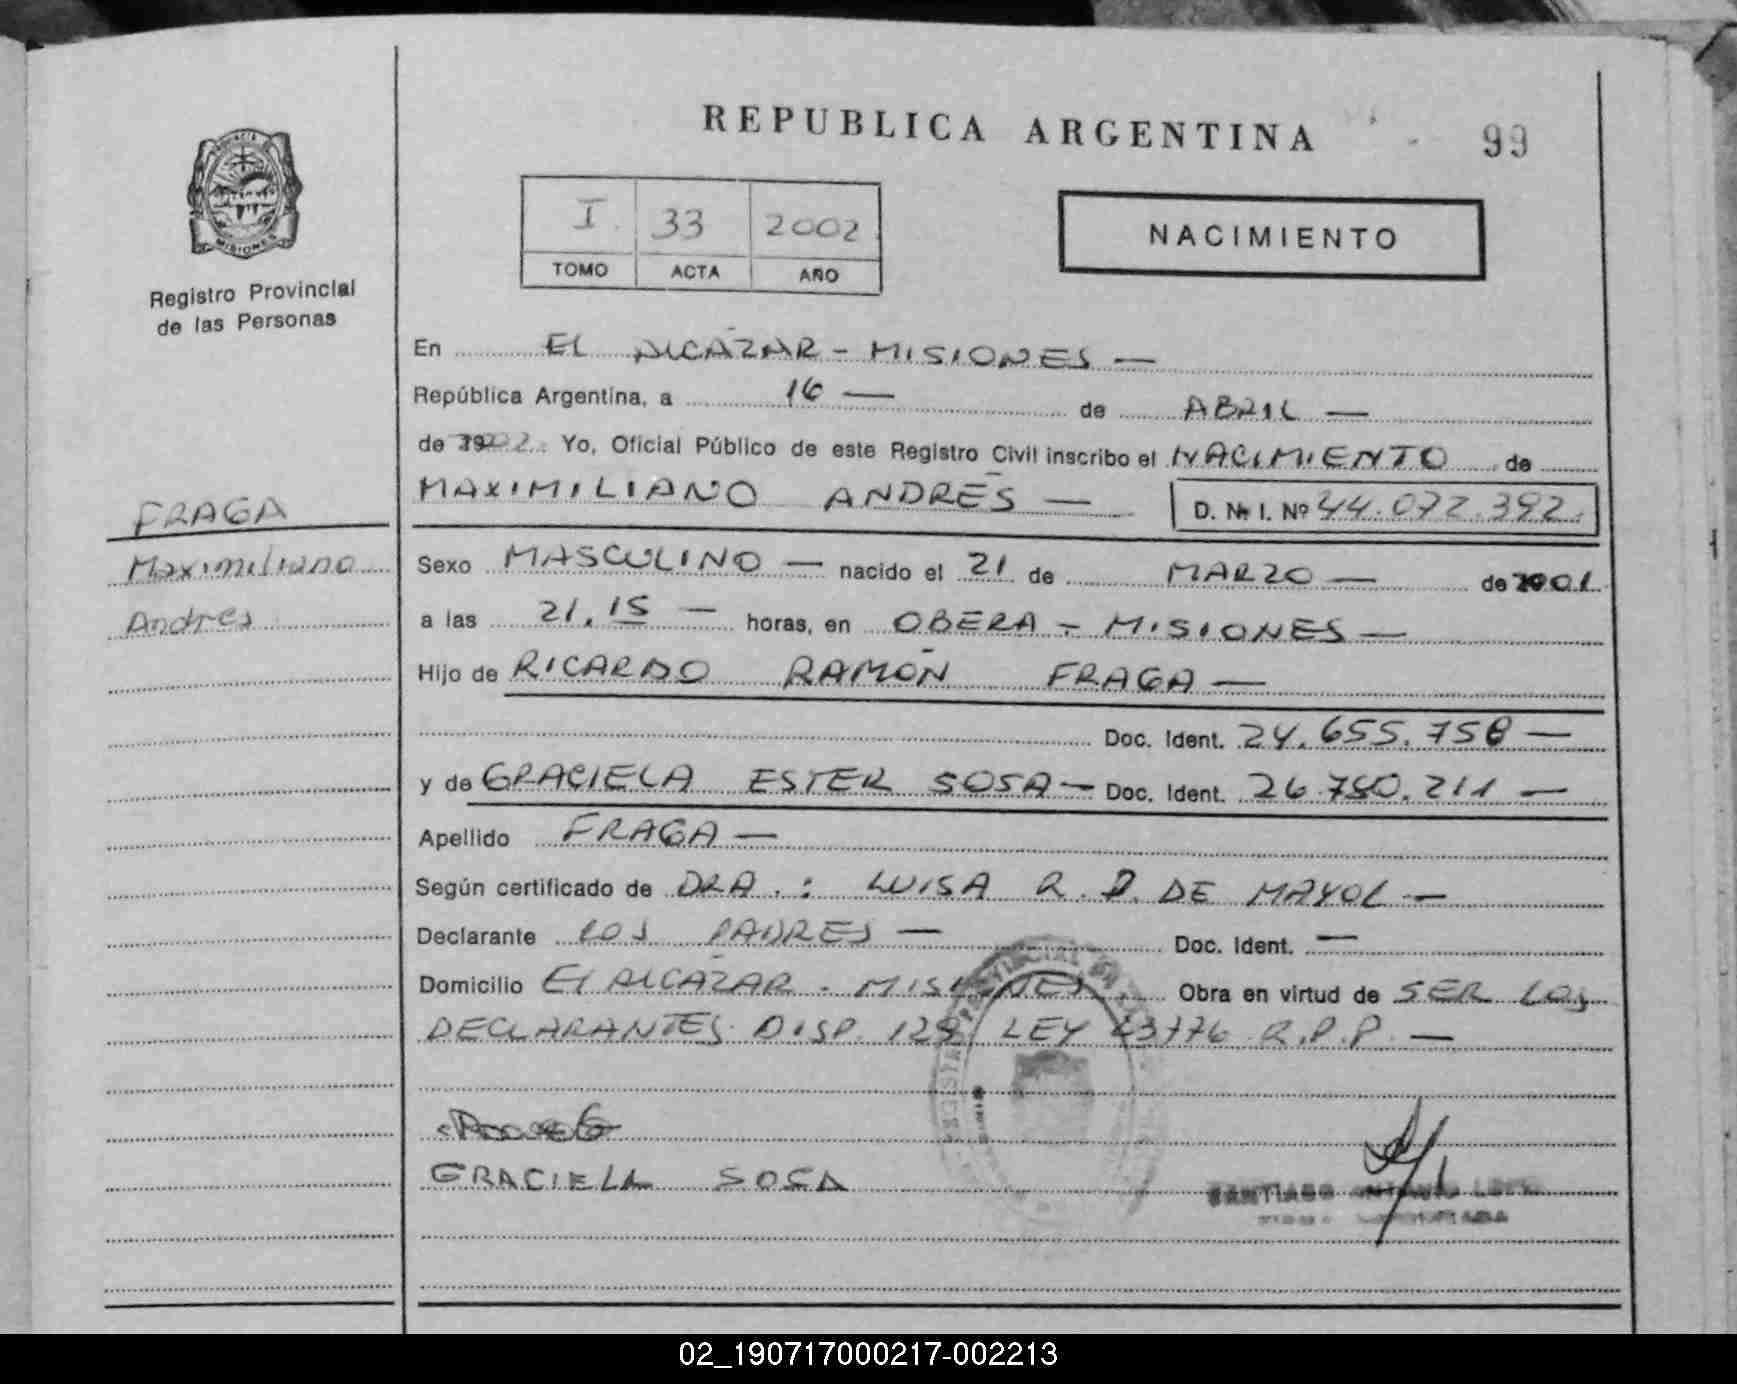 REPUBLICA ARGENTINA
99
I. 33 2002
TOMO ACTA AÑO
NACIMIENTO
MISIONES
Registro Provincial
de las Personas
FRAGA
Maximiliano
Andres
En EL ALCÁZAR - MISIONES —
República Argentina, a 16 — de ABRIL —
de 2002. Yo, Oficial Público de este Registro Civil inscribo el NACIMIENTO de
MAXIMILIANO ANDRÉS — D. N. I. Nº 44.072.392.
Sexo MASCULINO — nacido el 21 de MARZO — de 2001.
a las 21,15 — horas, en OBERA - MISIONES —
Hijo de RICARDO RAMÓN FRAGA —
Doc. Ident. 24.655.758 —
y de GRACIELA ESTER SOSA — Doc. Ident. 26.780.211 —
Apellido FRAGA —
Según certificado de DRA. : LUISA R. D. DE MAYOL —
Declarante LOS PADRES — Doc. Ident. —
Domicilio El ALCÁZAR - MISIONES. Obra en virtud de SER LOS
DECLARANTES. DISP. 128/ LEY 23776 R.P.P. —
GRACIELA SOSA
SANTIAGO ANTONIO
02_190717000217-002213